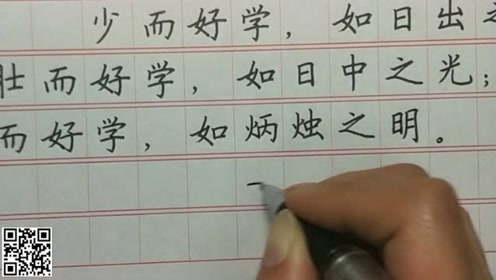 少而好学，如日出
壮而好学，如日中之光；
而好学，如炳烛之明。